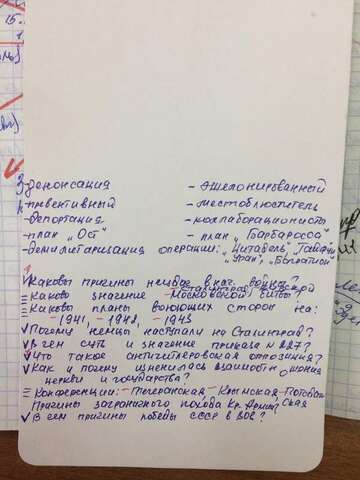 15.
- денонсация
- превентивный
- депортация
- план „Ост"
- демилитаризация
- эшелонированный
- местоблюститель
- коллаборационисты
- план „Барбаросса"
операции: „Цитадель", Тайфун
„Уран", „Багратион"
✓ Каковы причины неудач в нач. войны?
Сталинградской
≡ Каково значение - Московской битвы?
≡ Каковы планы воюющих сторон на:
- 1941 - 1942, - 1943
✓ Почему немцы наступали на Сталинград?
✓ В чем суть и значение приказа N 227?
✓ Что такое антигитлеровская оппозиция?
✓ Как и почему изменилась взаимоотношения
церкви и государства?
≡ Конференции: - Тегеранская - Крымская - Потсдам
ская
Причины заграничного похода Кр. Армии,
✓ В чем причины победы СССР в ВОВ?